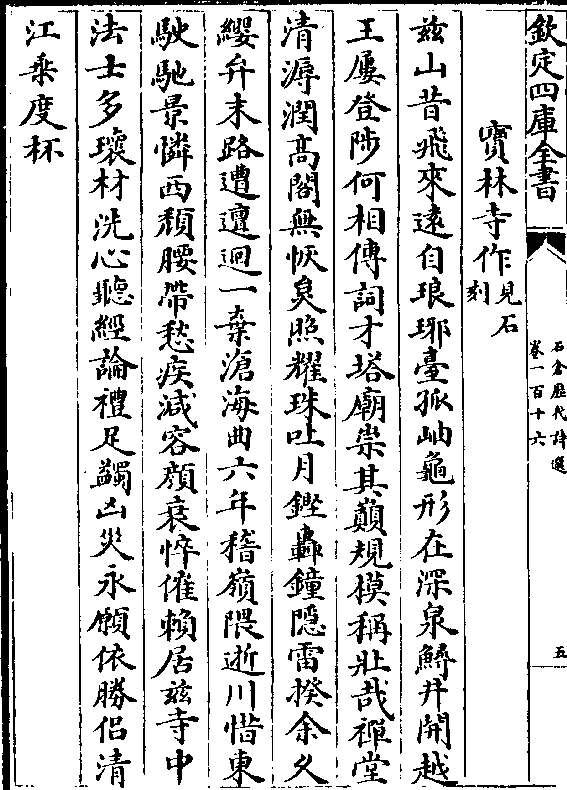 欽定四庫全書
石倉歷代詩選
卷一百十六
五
寶林寺作見石刻
茲山昔飛來遠自琅琊臺孤岫龜形在深泉鱓井開越
王屢登陟何相傳詞才塔廟崇其巔規模稱壯哉禪堂
清溽潤高閣無恢炱照耀珠吐月鏗轟鐘隱雷揆余久
纓弁末路遭邅迴一棄滄海曲六年稽嶺隈逝川惜東
駛馳景憐西頹腰帶愁疾減容顔衰悴催賴居茲寺中
法士多瓌材洗心聽經論禮足蠲凶災永願依勝侣清
江乗度杯